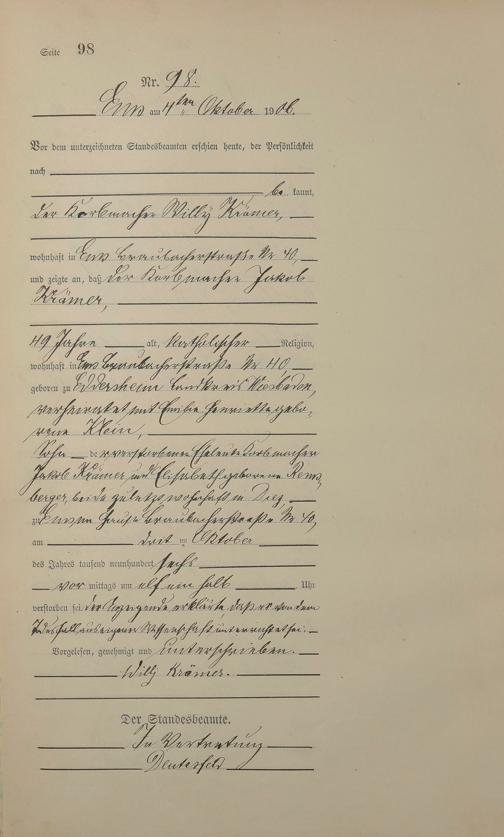 Seite 98
Nr. 98.
Ems am 4ten Oktober 1906.
Vor dem unterzeichneten Standesbeamten erschien heute, der Persönlichkeit
nach
be kannt,
der Korbmacher Willy Krämer,
wohnhaft in Ems Braubacherstraße Nr 40,
und zeigte an, daß der Korbmacher Jakob
Krämer,
49 Jahre alt, Katholischer Religion,
wohnhaft in Ems Braubacherstraße Nr 40
geboren zu Eddersheim Landkreis Wiesbaden,
verheiratet mit Emilie Henriette gebo-
rene Klein,
Sohn der verstorbenen Eheleute Korbmacher
Jakob Krämer und Elisabeth geborene
berger, beide zuletzt wohnhaft in Diez
zu Ems im Hause Braubacherstraße Nr 40,
am drit im Oktober
des Jahres tausend neunhundert sechs
vor mittags um elf ein halb Uhr
verstorben sei. der Anzeigende erklärte daß er von dem
Todesfall aus eigener Wissenschaft unterrichtet sei.
Vorgelesen, genehmigt und unterschrieben.
Willy Krämer.
Der Standesbeamte.
In Vertretung